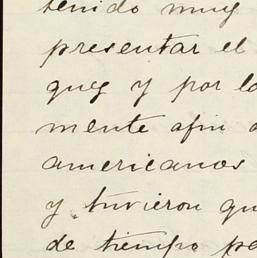 tenido muy
presentar el
que y por lo
mente afin a
americanos
y tuvieron qu
de tiempo pa